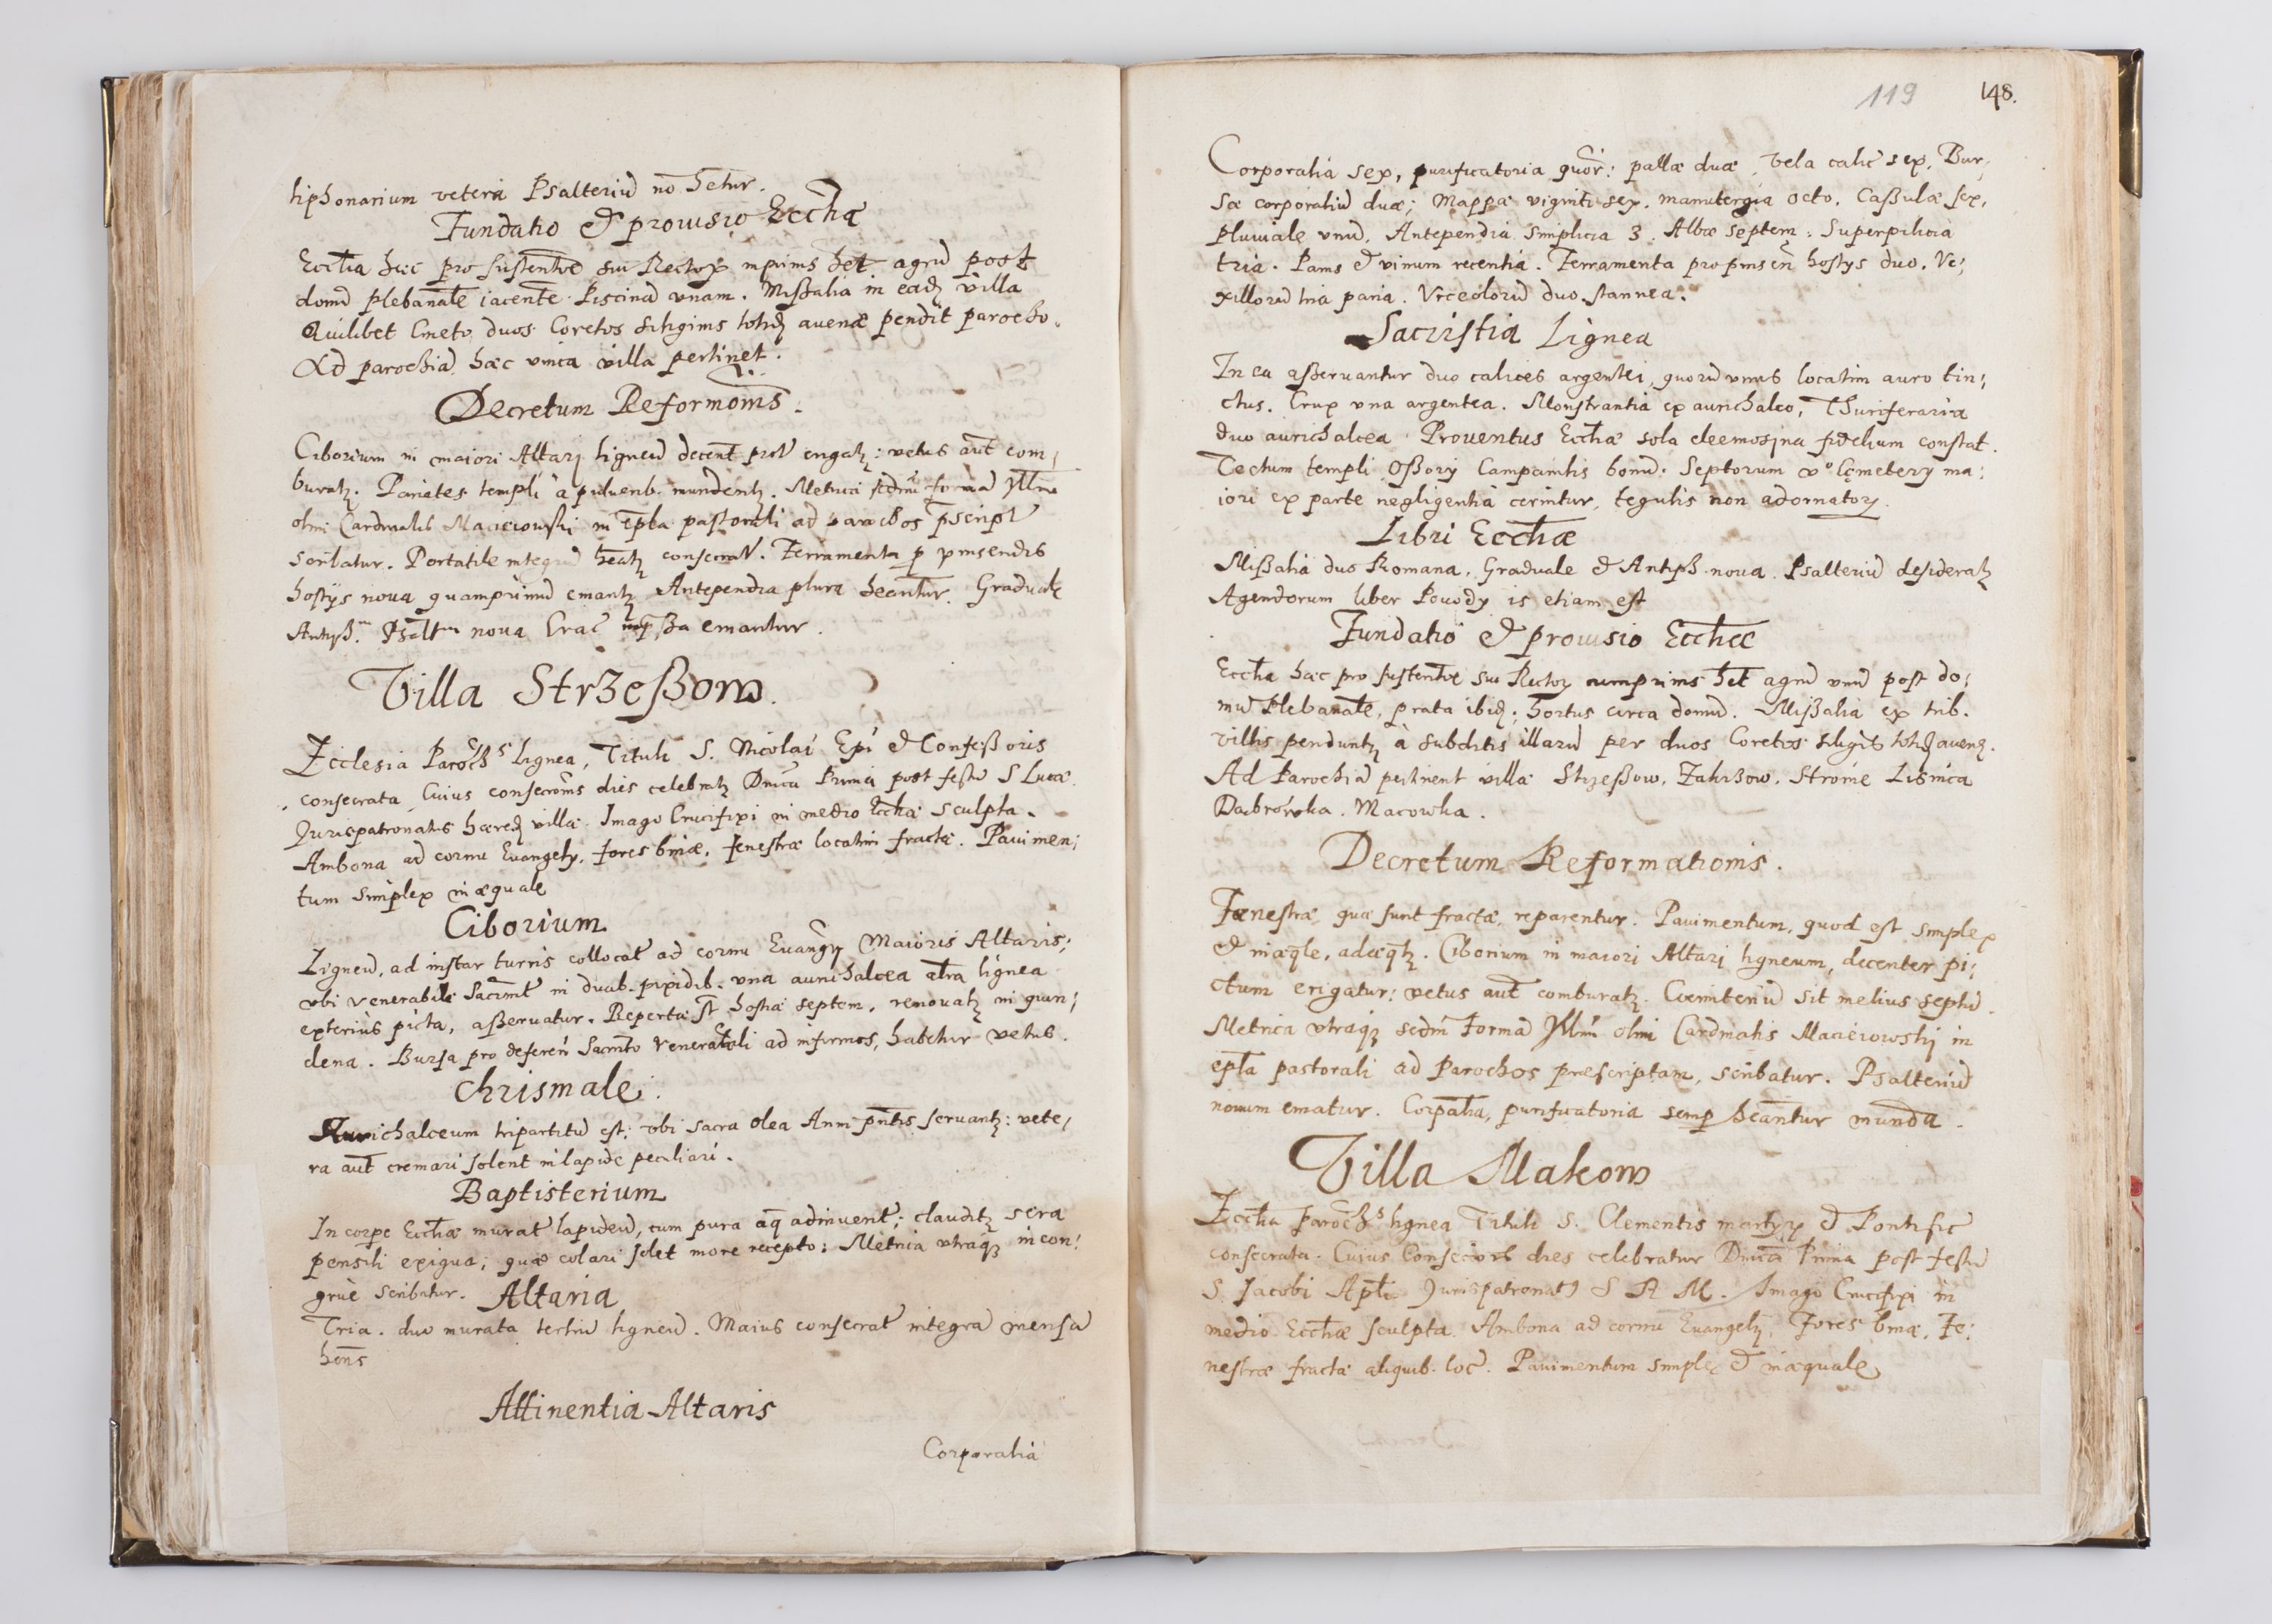 tiphonarium vetera Psalteriũ nō hetur.
Fundatio & prouisio Eccłæ
Eccłia hæc pro sustentõe sui Rectoꝝ inprimis het agrũ post
domũ plebanałe iacente. Piscinã vnam. Missalia in eadꝫ villa
Quilibet Cmeto duos Coretos siliginis totidꝫ auenæ pendit parocho.
Ad parochiã hæc vnica villa pertinet.
Decretum Reformõnis.
Ciborium in maiori Altarj ligneũ decent erigatꝫ: vetus aut̃ com,
buratꝫ. Parietes templi à puluerib. mundentꝫ. Metrici formã Jllmi
olim Cardinalis Macieiowski in epła pastorali ad parochos pscript
scribatur. Portatile integrũ heatꝫ consecrat̃. Ferramenta p pinsendis
hostijs noua quamprimũ emantꝫ Antependia plura heantur. Graduale
Antiph. Psaltm noua Crac emantur.
Villa Strzeßow.
Ecclesia Paroch.s lignea, Tituli S. Nicolai Epi & Confeßoris
consecrata, Cuius consecrõnis dies celebratꝫ Dnica Prima post festũ S Lucæ.
Jurispatronatus hæredꝫ villæ. Imago Crucifixi in medio Eccłæ sculpta.
Ambona ad cornu Euangelij, fores binæ, fenestræ locatim fractæ. Pauimen;
tum simplex inæquale
Ciborium
Ligneũ, ad instar turris collocat ad cornu Euangij Maioris Altaris;
vbi venerabile Sacrmt̃ in duab. pixidib. vna aurichalcea ałra lignea
exterius picta, aßeruatur. Repertæ st̃ hostiæ septem, renouatꝫ in quin;
dena. Bursa pro deferen Sacrmto Venerabili ad infirmos, habetur vetus.
Chrismale.
Aurichalceum tripartitũ est; vbi sacra olea Anni pñtis seruantꝫ: vete,
ra aut̃ cremari solent in lapide peculiari.
Baptisterium
In corpe Eccłæ murat lapideũ, cum pura aq̃ adinuent; clauditꝫ sera
pensili exigua; quæ colari solet more recepto: Metrica vtraqꝫ incon:
gruè scribitur. Altaria
Tria. duo murata tertiũ ligneũ. Maius consecrat integrã mensã
hens
Attinentia Altaris
Corporalia
119 148.
Corporalia sex, purificatoria quor: pallæ duæ, Vela calic sex, Bur,
sæ corporaliũ duæ; Mappæ viginti sex. manutergia octo. Caßulæ sex,
Pluuiale vnũ. Antependia simplicia 3. Albæ septem: Superpilicia
tria. Panis & vinum recentia. Ferramenta pro pinsen hostijs duo. Ve;
xillorũ tria paria. Vrceolorũ duo stannea.
Sacristia Lignea
In ea aßeruantur duo calices argentei, quorũ vnus locatim auro tin;
ctus. Crux vna argentea. Monstrantia ex aurichalco, Thuriferaria
duo aurichalcea. Prouentus Eccłæ sola eleemosjna fidelium constat.
Tectum templi Oßorij Campanilis bonũ. Septorum vo Cęmeterij ma;
iori ex parte negligentia cernitur, tegulis non adornatorꝫ.
Libri Eccłæ
Mißalia duo Romana. Graduale & Antiph. noua. Psalteriũ desideratꝫ
Agendorum liber Powody is etiam est
Fundatio & prouisio Eccłæ
Eccłia hæc pro sustentõe sui Rectoꝝ inprimis het agrũ vnũ post do;
mũ Plebanałe, prata ibidꝫ; hortus circa domũ. Mißalia ex trib.
villis penduntꝫ à subditis illarũ per duos Coretos siligis totidꝫ auenꝫ.
Ad Parochiã pertinent villæ Strzeßow, Zahrßow, Stronie Lisnica
Dabrówka. Macowka.
Decretum Reformationis.
Fænestræ, quæ sunt fractæ, reparentur. Pauimentum, quod est simplex
& inæq̃le, adæq̃tꝫ. Ciborium in maiori Altarj ligneum, decenter pi;
ctum erigatur; vetus aut̃ comburatꝫ. Cœmiteriũ sit melius septũ.
Metrica vtraqꝫ secdm formã Jllmi olim Cardinalis Macieiowskj in
epła pastorali ad Parochos præscriptam, scribatur. Psalteriũ
nouum ematur. Corpałia, purificatoria semp heantur munda.
Villa Makow
Eccłia paroch.s lignea Tituli S. Clementis martyrꝫ & Pontific
consecrata. Cuius Consecrõis dies celebratur Dnica Prima post festũ
S. Jacobi Apłi. Jurispatronat9 S R M. Imago Crucifixi in
medio Eccłæ sculpta. Ambona ad cornu Euangelij, Fores binæ, Fe;
nestræ fractæ aliquib. loc. Pauimentum simplex & inæquale